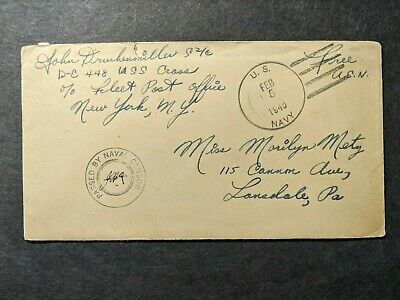 John Drunkenmiller S 2/c
D-C 448 USS Cross
c/o Fleet Post Office
New York, N.Y.
U. S.
FEB
5
1945
NAVY
Free
U.S.N.
Miss Marilyn Metz
115 Cannon Ave,
Lansdale, Pa
PASSED BY NAVAL CENSOR